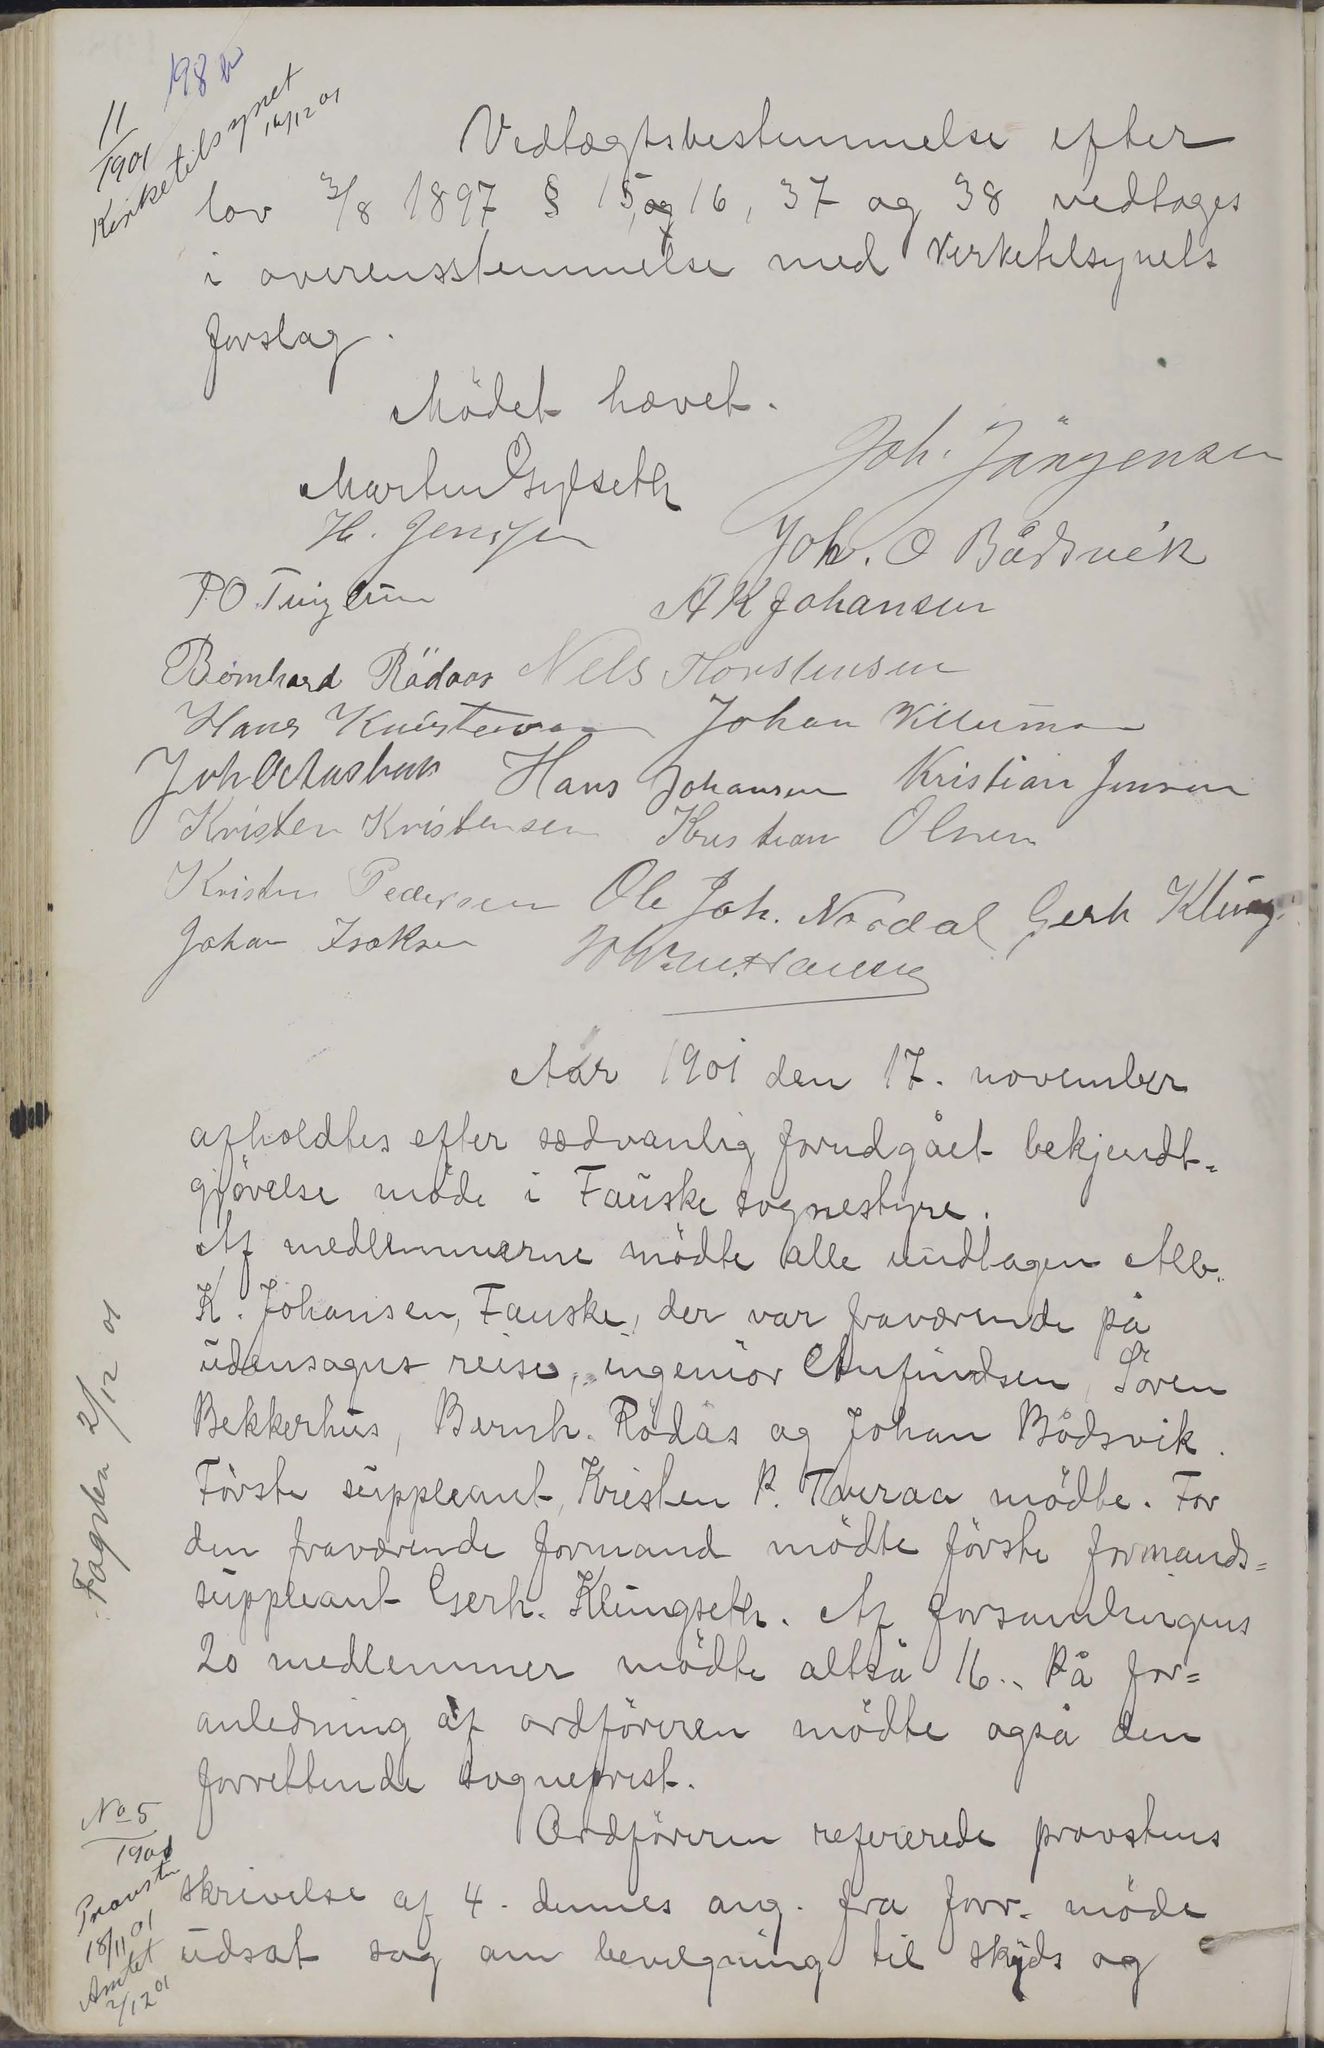 198 b
11
1901
Kirketilsynet
16/12 01
Vedtægtsbestemmelse efter
lov 3/8 1897 § 15, og 16, 37 og 38 vedtages
i overensstemmelse med kirketilsynets
forslag.
Mödet hævet.
Joh. Jörgensen
Martin Gylseth
H. Jenssen
Joh. O Bådsvik
P O Tuv
A K Johansen
Bernhard Rödaas Nils Thorstensen
Hans Johan
Joh Hans Johansen Kristian Jensen
Kristen Kristensen Kristian Olsen
Kristen Pedersen Ole Joh. Nordal Gerh Kling
Johan Isaksen
Aar 1901 den 17. november
afholdtes efter sædvanlig forudgået bekjendt-
gjörelse möde i Fauske sognestyre.
Af medlemmerne mödte alle undtagen Alb.
K. Johansen, Fauske, der var fraværende på
udensogns reise, ingeniör Anfindsen, Sören
Bekkerhus, Bernh. Rödås og Johan Bådsvik.
Förste suppleant, Kristen P. Tveraa mödte. For
den fraværende formand mödte förste formands-
suppleant Gerh. Klungseth. Af forsamlingens
20 medlemmer mödte altså 16. På for-
anledning af ordföreren mödte også den
forrettende sogneprest.
Fagerli 2/12 01
No 5
1901
Provsten
18/11 01
Amtet
2/12 01
Ordföreren refererede provstens
skrivelse af 4. dennes ang. fra forr. möde
udsat sag om bevilgning til skyds og